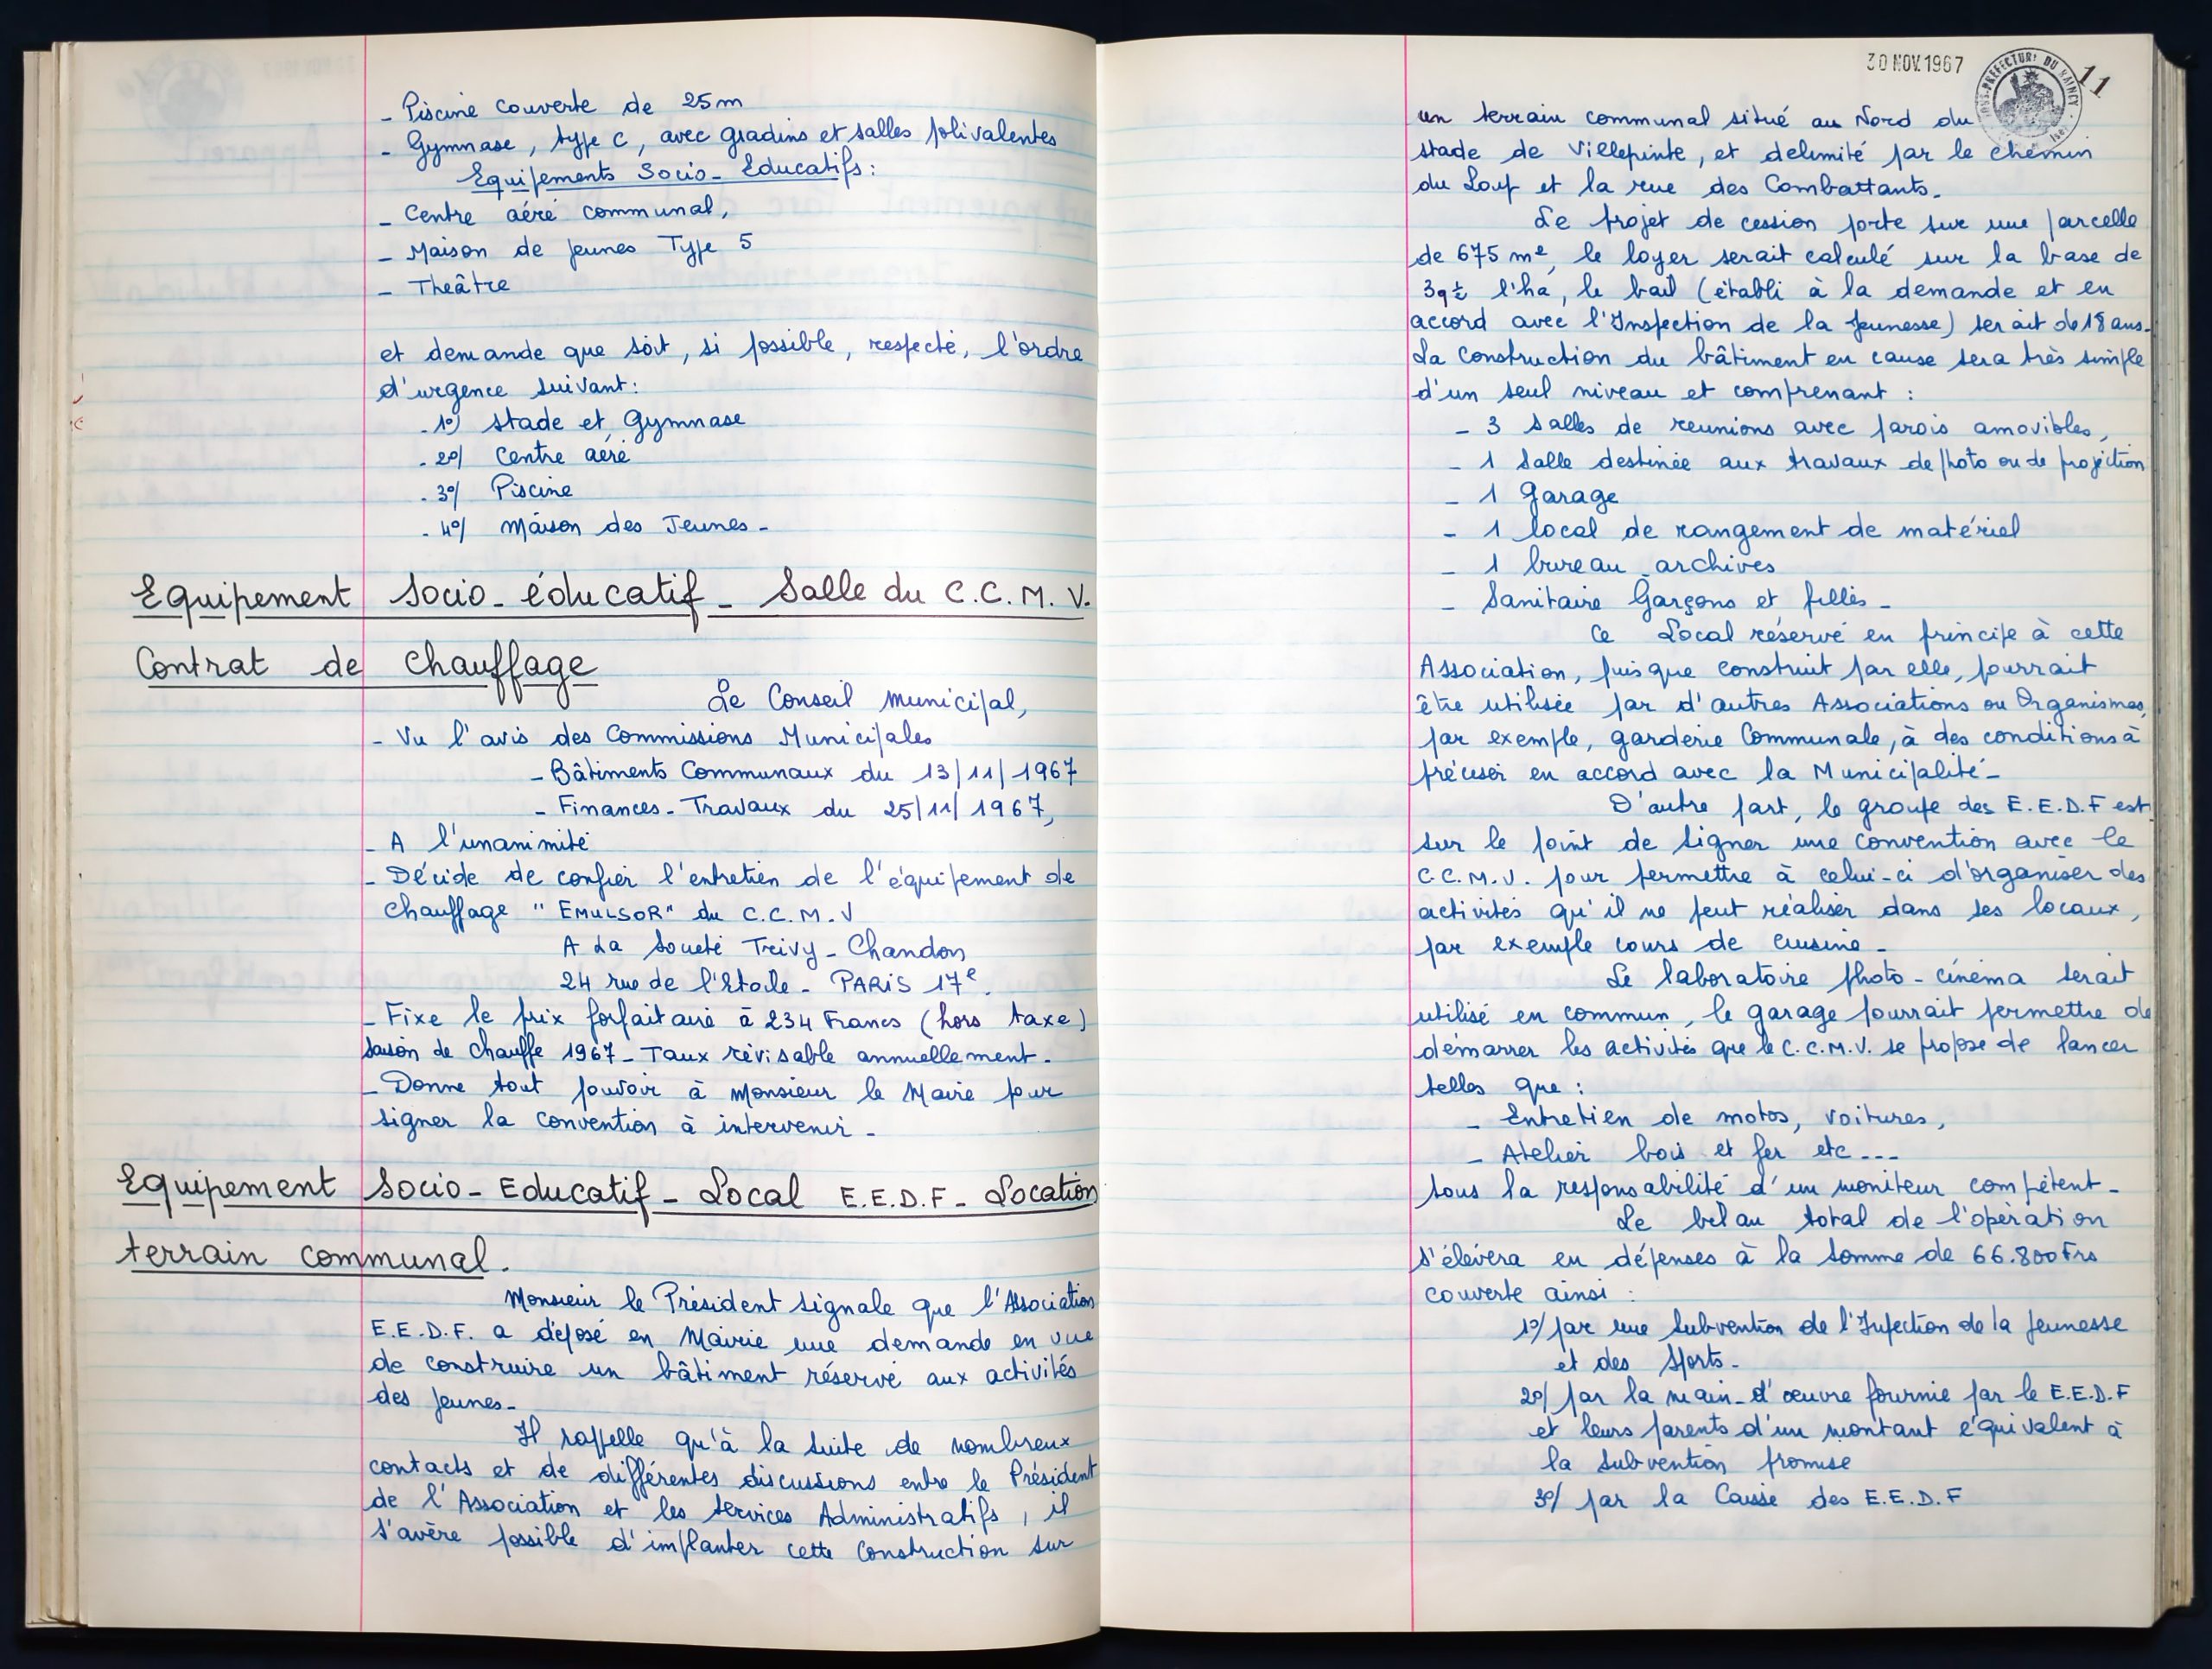 - Piscine couverte de 25m
- Gymnase, type C, avec gradins et salles polivalentes
Equipements Socio-Educatifs:
- Centre aéré communal,
- Maison de Jeunes Type 5
- Theâtre
et demande que soit, si possible, respecté, l'ordre
d'urgence suivant:
- 1°) Stade et Gymnase
- 2°/ Centre aéré
- 3°/ Piscine
- 4°/ Maison des Jeunes -
Equipement Socio-éducatif - Salle du C.C.M.V.
Contrat de chauffage
Le Conseil Municipal,
- Vu l'avis des Commissions Municipales
- Bâtiments Communaux du 13/11/1967
- Finances - Travaux du 25/11/1967,
- A l'unanimité
- Décide de confier l'entretien de l'équipement de
chauffage "EMULSOR" du C.C.M.V
A La Société Treivy - Chandon
24 rue de l'Etoile - PARIS 17e.
- Fixe le prix forfaitaire à 234 Francs (hors taxe)
saison de chauffe 1967 - Taux révisable annuellement.
- Donne tout pouvoir à Monsieur le Maire pour
signer la convention à intervenir -
Equipement Socio-Educatif - Local E.E.D.F - Location
terrain communal.
Monsieur le Président signale que l'Association
E.E.D.F. a déposé en Mairie une demande en vue
de construire un bâtiment réservé aux activités
des Jeunes -
Il rappelle qu'à la suite de nombreux
contacts et de différentes discussions entre le Président
de l'Association et les services Administratifs, il
s'avère possible d'implanter cette construction sur
30 NOV. 1967
SOUS-PREFECTURE DU RAINCY
11
un terrain communal situé au Nord du
stade de Villepinte, et delimité par le chemin
du Loup et la rue des Combattants -
Le projet de cession porte sur une parcelle
de 675 m2, le loyer serait calculé sur la base de
3q l'ha, le bail (établi à la demande et en
accord avec l'Inspection de la Jeunesse) serait de 18 ans -
La construction du bâtiment en cause sera très simple
d'un seul niveau et comprenant :
- 3 salles de reunions avec parois amovibles,
- 1 salle destinée aux travaux de photo ou de projection
- 1 garage
- 1 local de rangement de matériel
- 1 bureau - archives
- Sanitaire Garçons et filles -
Ce Local réservé en principe à cette
Association, puisque construit par elle, pourrait
être utilisée par d'autres Associations ou Organismes,
par exemple, garderie Communale, à des conditions à
préciser en accord avec la Municipalité -
D'autre part, le groupe des E.E.D.F est
sur le point de signer une convention avec le
C.C.M.V. pour permettre à celui-ci d'organiser des
activités qu'il ne peut réaliser dans ses locaux,
par exemple cours de cuisine -
Le laboratoire photo-cinéma serait
utilisé en commun, le garage pourrait permettre de
démarrer les activités que le C.C.M.V. se propose de lancer
telles que :
- Entretien de motos, voitures,
- Atelier bois et fer etc...
sous la responsabilité d'un moniteur compétent -
Le bilan total de l'opération
s'élévera en dépenses à la somme de 66.800 Frs
couverte ainsi :
1°/ par une Subvention de l'Inspection de la Jeunesse
et des Sports -
2°/ par la main-d'œuvre fournie par le E.E.D.F
et leurs parents d'un montant équivalent à
la subvention promise
3°/ par la Caisse des E.E.D.F